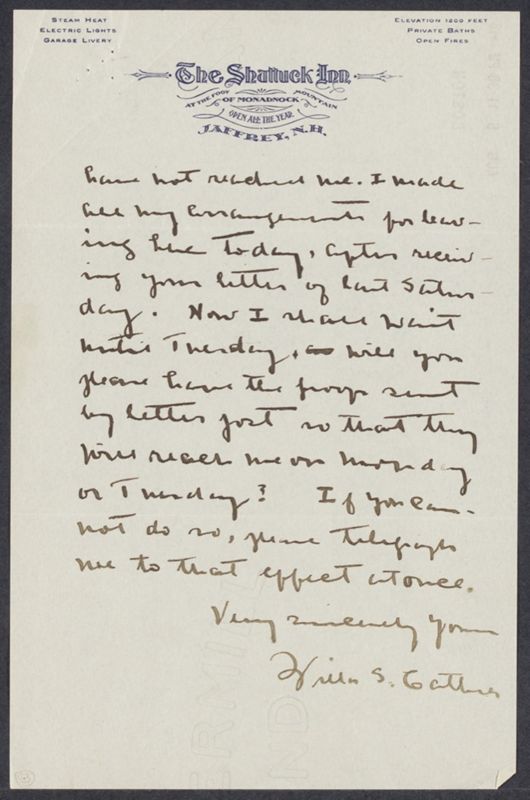 STEAM HEAT
ELECTRIC LIGHTS
GARAGE LIVERY
ELEVATION 1200 FEET
PRIVATE BATHS
OPEN FIRES
The Shattuck Inn
AT THE FOOT OF MONADNOCK MOUNTAIN
OPEN ALL THE YEAR
JAFFREY, N.H.
have not reached me. I made
all my arrangements for leav-
ing here today, after receiv-
ing your letter of last Satur-
day. Now I shall wait
until Tuesday, will you
please have the proofs sent
by letter post so that they
will reach me on Monday
or Tuesday? If you can-
not do so, please telegraph
me to that effect at once.
Very sincerely Yours
Willa S. Cather